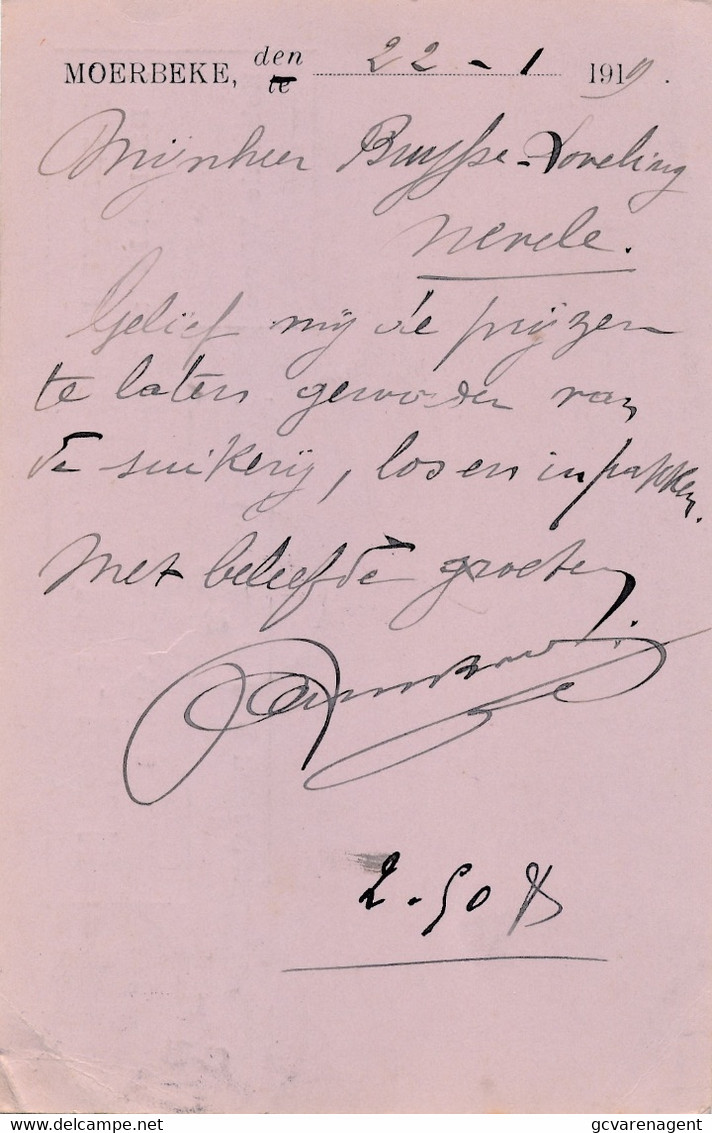 MOERBEKE, den te 22 - 1 1919.
Mijnheer Buysse-Loveling
Nevele.
Gelief mij de prijzen
te laten geworden van
de suikerij, los en in pakken.
Met beleefde groeten,
2.50 %
delcampe.net
gcvarenagent